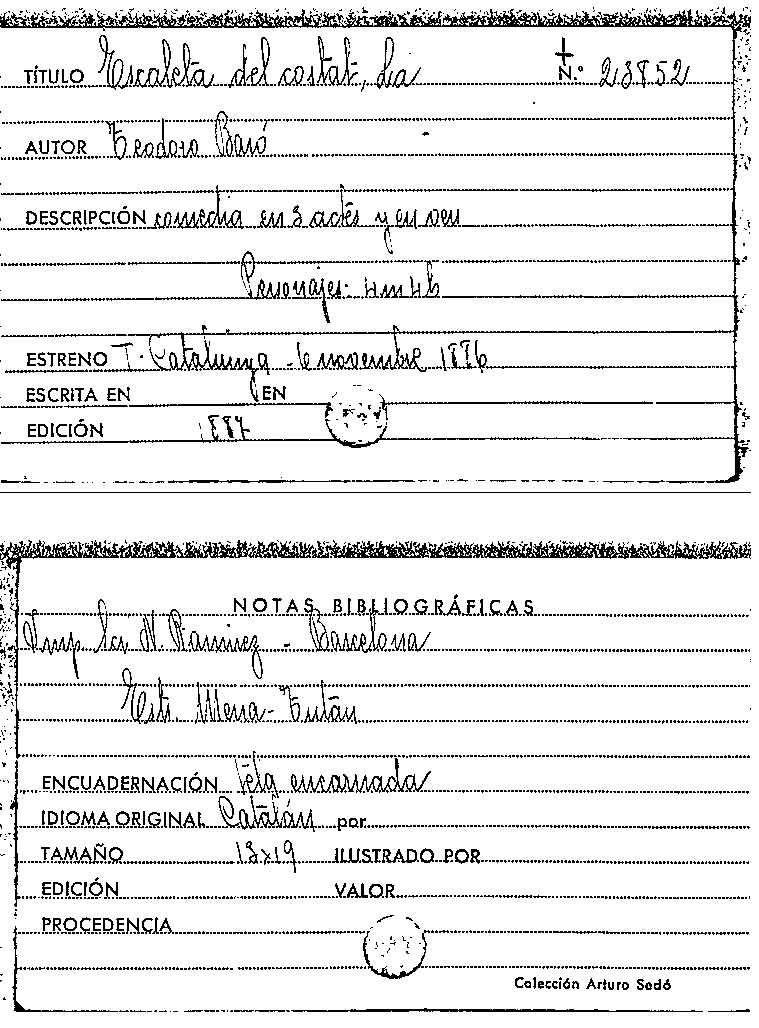 TÍTULO Escaleta del costat, La N.º 23852
AUTOR Teodoro Baró
DESCRIPCIÓN comedia en 3 actes y en vers
Personajes: 4m 4h
ESTRENO T. Catalunya - 6 novembre 1886
ESCRITA EN EN
EDICIÓN 1887
NOTAS BIBLIOGRÁFICAS
Imp. Sci N. Ramirez - Barcelona
Est. Mena-Tutáu
ENCUADERNACIÓN tela encarnada
IDIOMA ORIGINAL Catalán por
TAMAÑO 13x19 ILUSTRADO POR
EDICIÓN VALOR
PROCEDENCIA
Colección Arturo Sedó